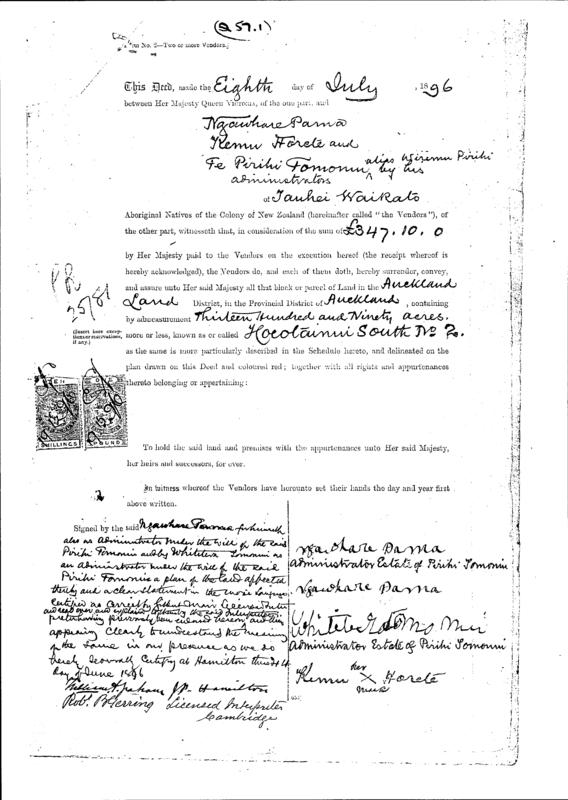 (Q 57.1)
No. 2—Two or more Vendors.]
This Deed, made the Eighth day of July , 1896
between Her Majesty Queen Victoria, of the one part, and
Ngawhare Pama
Remu Horete and
Te Pirihi Tomonui alias Wiremu Pirihi
by his
administrators
of Tauhei Waikato
Aboriginal Natives of the Colony of New Zealand (hereinafter called "the Vendors"), of
the other part, witnesseth that, in consideration of the sum of £347.10.0
by Her Majesty paid to the Vendors on the execution hereof (the receipt whereof is
hereby acknowledged), the Vendors do, and each of them doth, hereby surrender, convey,
and assure unto Her said Majesty all that block or parcel of Land in the Auckland
Land District, in the Provincial District of Auckland , containing
by admeasurement Thirteen Hundred and Ninety acres.
[Insert here exceptions or reservations, if any.]
more or less, known as or called Hoeotainui South No 2.
as the same is more particularly described in the Schedule hereto, and delineated on the
plan drawn on this Deed and coloured red; together with all rights and appurtenances
thereto belonging or appertaining:
25/81
SHILLINGS
POUND
To hold the said land and premises with the appurtenances unto Her said Majesty,
her heirs and successors, for ever.
In witness whereof the Vendors have hereunto set their hands the day and year first
above written.
Signed by the said Ngawhare Pama for himself
also as administrator under the will of the said
Pirihi Tomonui and by Whitiora Tomonui as
an administrator under the will of the said
Pirihi Tomonui a plan of the land affected
thereby and a clear statement in the Maori language
certified as correct by Licensed Interpreter
and read over and explained by the said Interpreter
previously been endorsed hereon and they
appearing clearly to understand the meaning
of the same in our presence as we do
hereby severally certify at Hamilton this
day of June 1896
William A. Graham J.P. Hamilton
Robt. P. Herring Licensed Interpreter
Cambridge
Ngawhare Pama
Administrator Estate of Pirihi Tomonui
Ngawhare Pama
Administrator Estate of Pirihi Tomonui
Remu her X Horete
mark